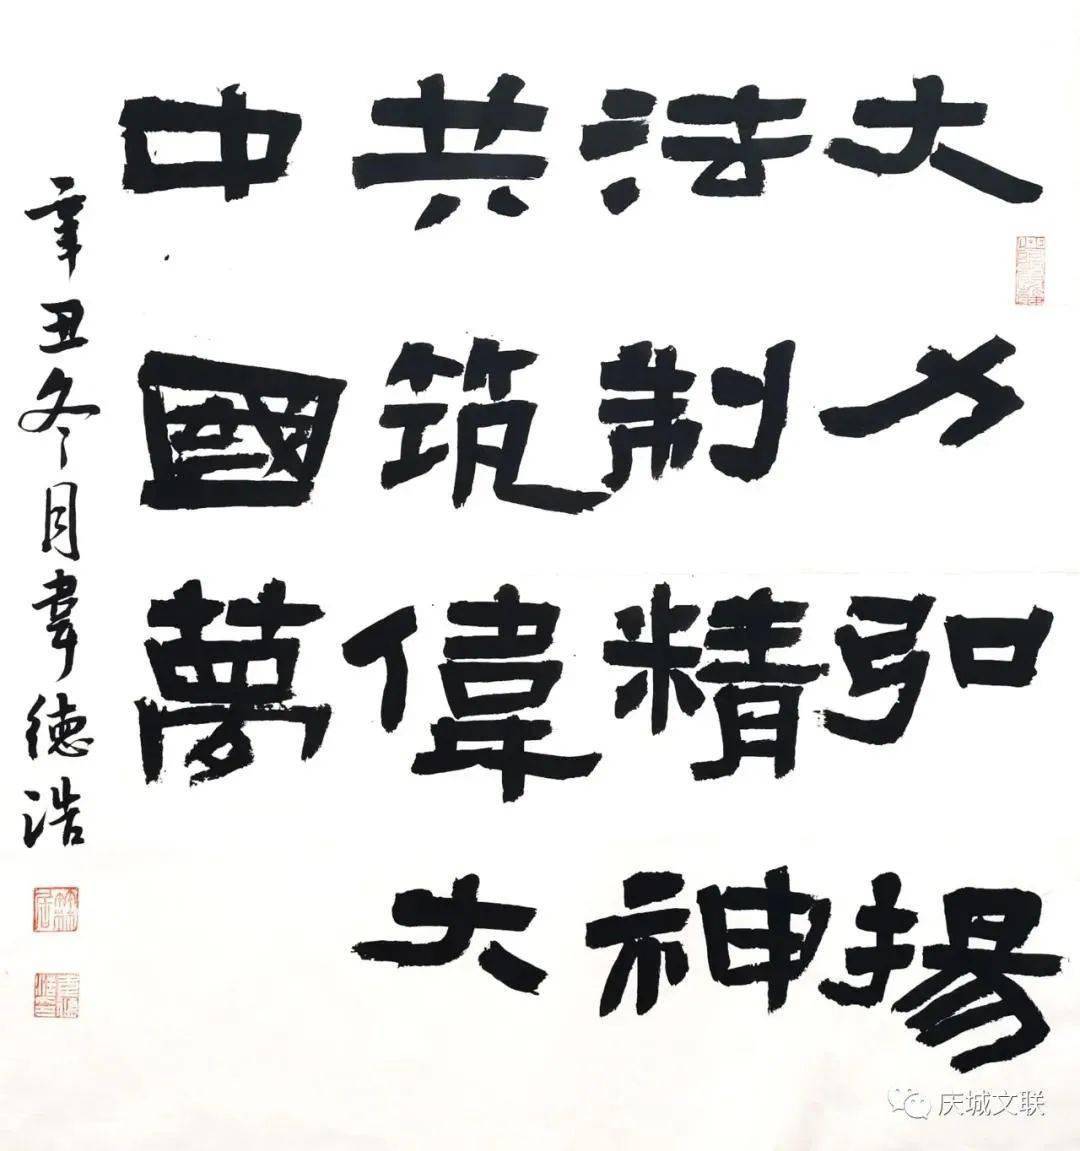 大力弘揚
法制精神
共筑偉大
中國夢
辛丑冬月韋德浩
庆城文联